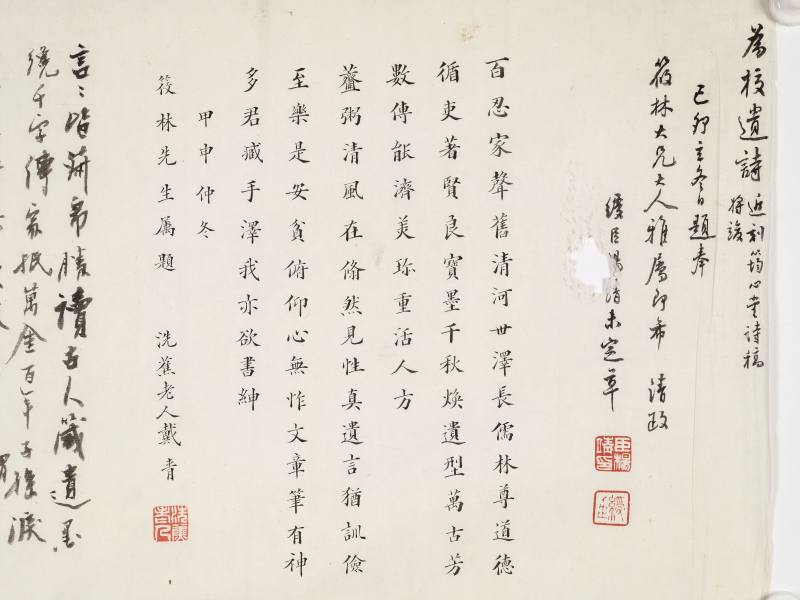 為校遺詩近刻筠心堂詩稿將竣
己卯立冬日題奉
筱林大兄大人雅屬即希 清政
緩臣楊 未定草
百忍家聲舊清河世澤長儒林尊道德
循吏著賢良寶墨千秋煥遺型萬古芳
數傳能濟美珍重活人方
虀粥清風在翛然見性真遺言猶訓儉
至樂是安貧俯仰心無怍文章筆有神
多君臧手澤我亦欲書紳
甲申仲冬
筱林先生屬題 洗蕉老人戴青
言〻皆菽帛勝讀古人箴遺墨
繞千字傳家抵萬金百年子孫淚